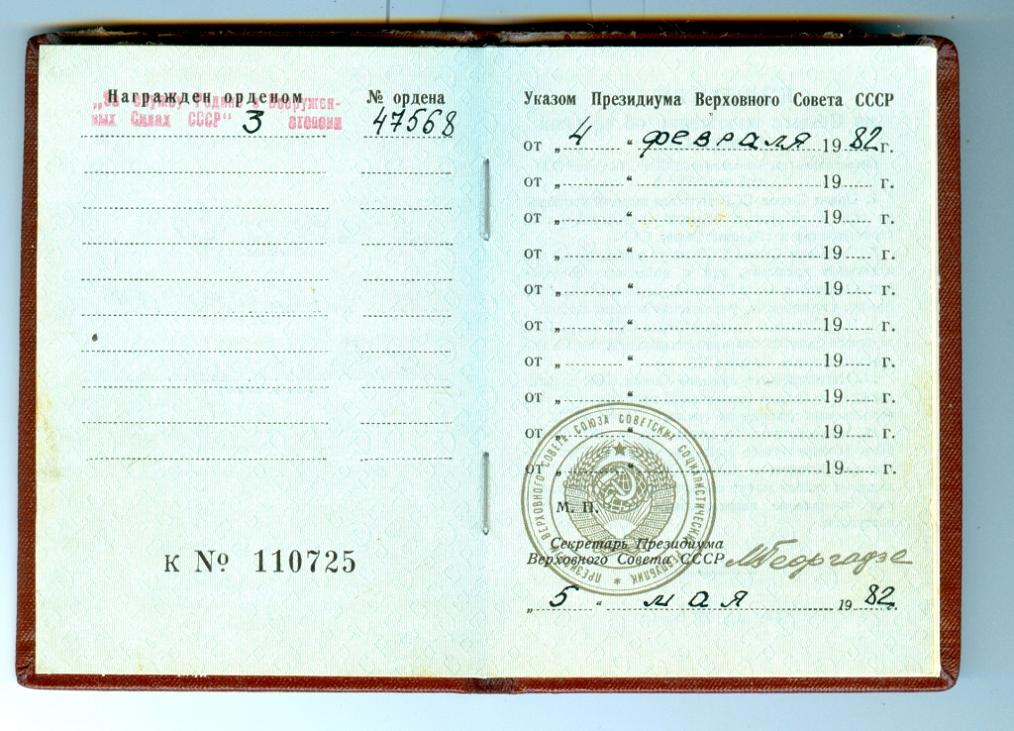 Награжден орденом № ордена
„За службу Родине в Вооружен-
ных Силах СССР" 3 степени 47568
к № 110725
Указом Президиума Верховного Совета СССР
от „ 4 “ февраля 1982 г.
от „ “ 19 г.
от „ “ 19 г.
от „ “ 19 г.
от „ “ 19 г.
от „ “ 19 г.
от „ “ 19 г.
от „ “ 19 г.
от „ “ 19 г.
от „ “ 19 г.
ПРЕЗИДИУМ ВЕРХОВНОГО СОВЕТА СОЮЗА СОВЕТСКИХ СОЦИАЛИСТИЧЕСКИХ РЕСПУБЛИК
М. П.
Секретарь Президиума
Верховного Совета СССР МГеоргадзе
„ 5 “ мая 1982 г.